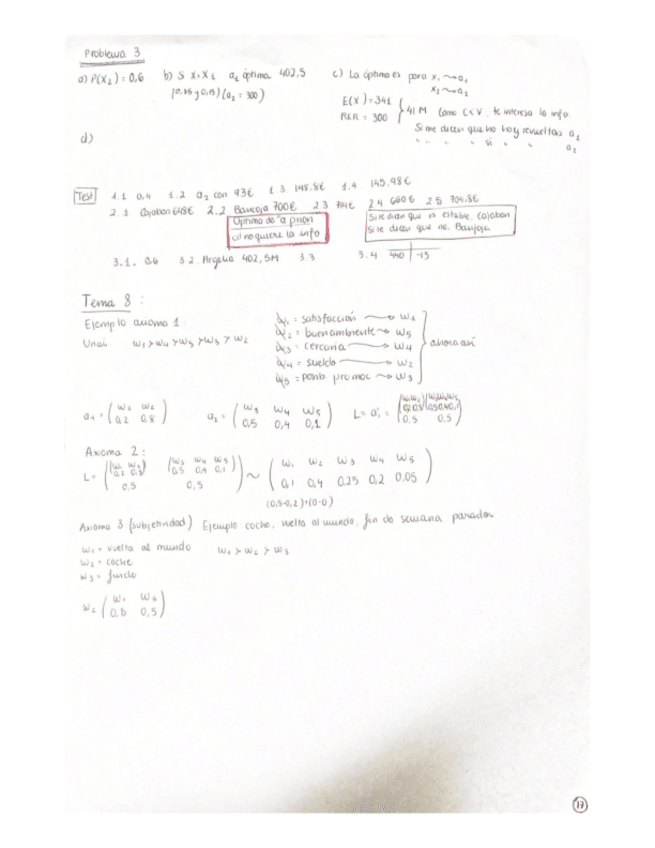 Problema 3
a) P(X₂) = 0,6 b) Si X=X₁ a₁ óptima 402,5
(0,85 y 0,15) (a₂ = 300)
c) La óptima es para x₁ ⇝ a₁
x₂ ⇝ a₂
E(X) = 341
RER = 300 } 41 M Como C<V, te interesa la info.
Si me dicen que no hay revueltas a₁
" " " si " " a₂
d)
Test 1.1 0,4 1.2 a₂ con 93€ 1.3 148,8€ 1.4. 145,98€
2.1 Cajaban 648€ 2.2 Bancaja 700€ 2.3 2.4 660€ 2.5 704,8€
Óptimo de "a priori"
no quiere la info
Si te dicen que es estable, Cajaban
Si te dicen que no, Bancaja
3.1. 0,6 3.2. Argelia 402,5M 3.3 3.4 440 | -15
Tema 8:
Ejemplo axioma 1:
Unai: w₁>w₄>w₅>w₃>w₂
w₁ = satisfacción → w₁
w₂ = buen ambiente → w₅
w₃ = cercanía → w₄
w₄ = sueldo → w₂
w₅ = posib. promoc ⇝ w₃
} ahora así
a₁ = (w₁ w₂ / 0,2 0,8) a₂ = (w₃ w₄ w₅ / 0,5 0,4 0,1) L = a'₁ = ((w₁ w₂ / 0,2 0,8) (w₃ w₄ w₅ / 0,5 0,4 0,1) / 0,5 0,5)
Axioma 2:
L = ((w₁ w₂ / 0,2 0,8) (w₃ w₄ w₅ / 0,5 0,4 0,1) / 0,5 0,5) ~ (w₁ w₂ w₃ w₄ w₅ / 0,1 0,4 0,25 0,2 0,05)
(0,5·0,2)+(0·0)
Axioma 3 (subjetividad) Ejemplo coche, vuelta al mundo, fin de semana parador
w₁ = vuelta al mundo w₁ > w₂ > w₃
w₂ = coche
w₃ = finde
w₂ (w₁ w₃ / 0,5 0,5)
17